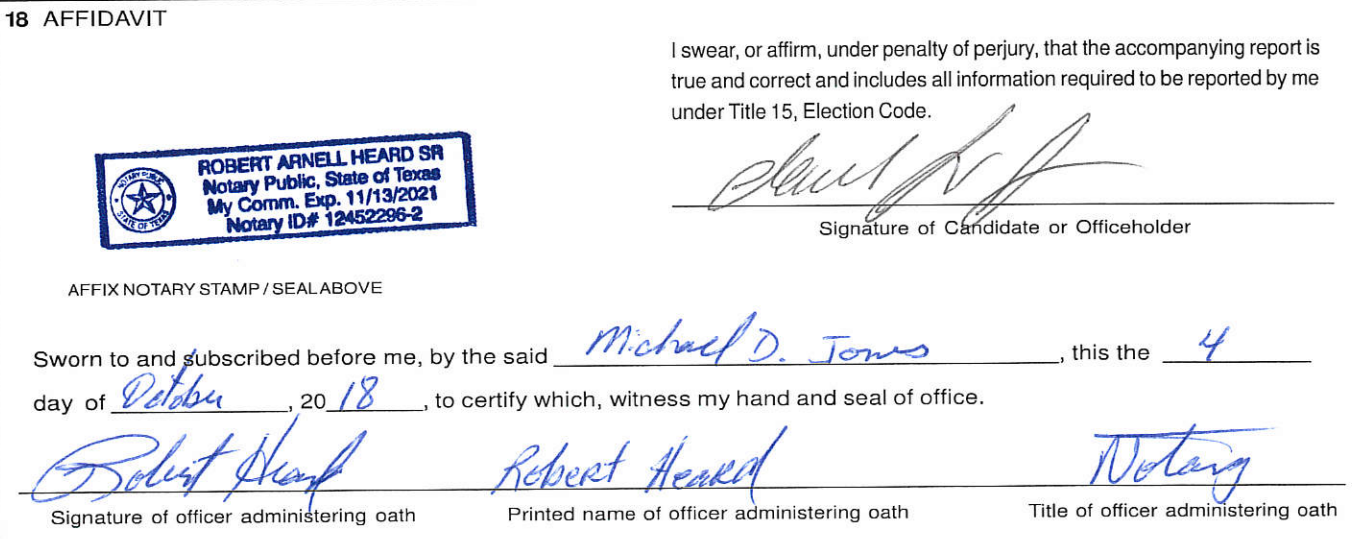 18 AFFIDAVIT
I swear, or affirm, under penalty of perjury, that the accompanying report is
true and correct and includes all information required to be reported by me
under Title 15, Election Code.
ROBERT ARNELL HEARD SR
Notary Public, State of Texas
My Comm. Exp. 11/13/2021
Notary ID# 12452296-2
NOTARY PUBLIC
STATE OF TEXAS
Signature of Candidate or Officeholder
AFFIX NOTARY STAMP / SEAL ABOVE
Sworn to and subscribed before me, by the said Michael D. Jones, this the 4
day of October, 20 18, to certify which, witness my hand and seal of office.
Robert Heard Robert Heard Notary
Signature of officer administering oath Printed name of officer administering oath Title of officer administering oath